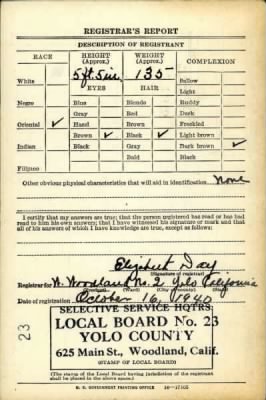 REGISTRAR'S REPORT
DESCRIPTION OF REGISTRANT
RACE HEIGHT (Approx.) WEIGHT (Approx.) COMPLEXION
5 ft. 5 in. 135
White Sallow
EYES HAIR Light
Negro Blue Blonde Ruddy
Gray Red Dark
Oriental ✓ Hazel Brown Freckled
Brown ✓ Black ✓ Light brown
Indian Black Gray Dark brown ✓
Bald Black
Filipino
Other obvious physical characteristics that will aid in identification None
I certify that my answers are true; that the person registered has read or has had
read to him his own answers; that I have witnessed his signature or mark and that
all of his answers of which I have knowledge are true, except as follows:
Elizabeth Day
(Signature of registrar)
Registrar for W. Woodland No. 2 Yolo California
(Precinct) (Ward) (City or county) (State)
Date of registration October 16, 1940
SELECTIVE SERVICE HQTRS.
LOCAL BOARD No. 23
YOLO COUNTY
625 Main St., Woodland, Calif.
(STAMP OF LOCAL BOARD)
23
(The stamp of the Local Board having jurisdiction of the registrant
shall be placed in the above space.)
U. S. GOVERNMENT PRINTING OFFICE 16—17105